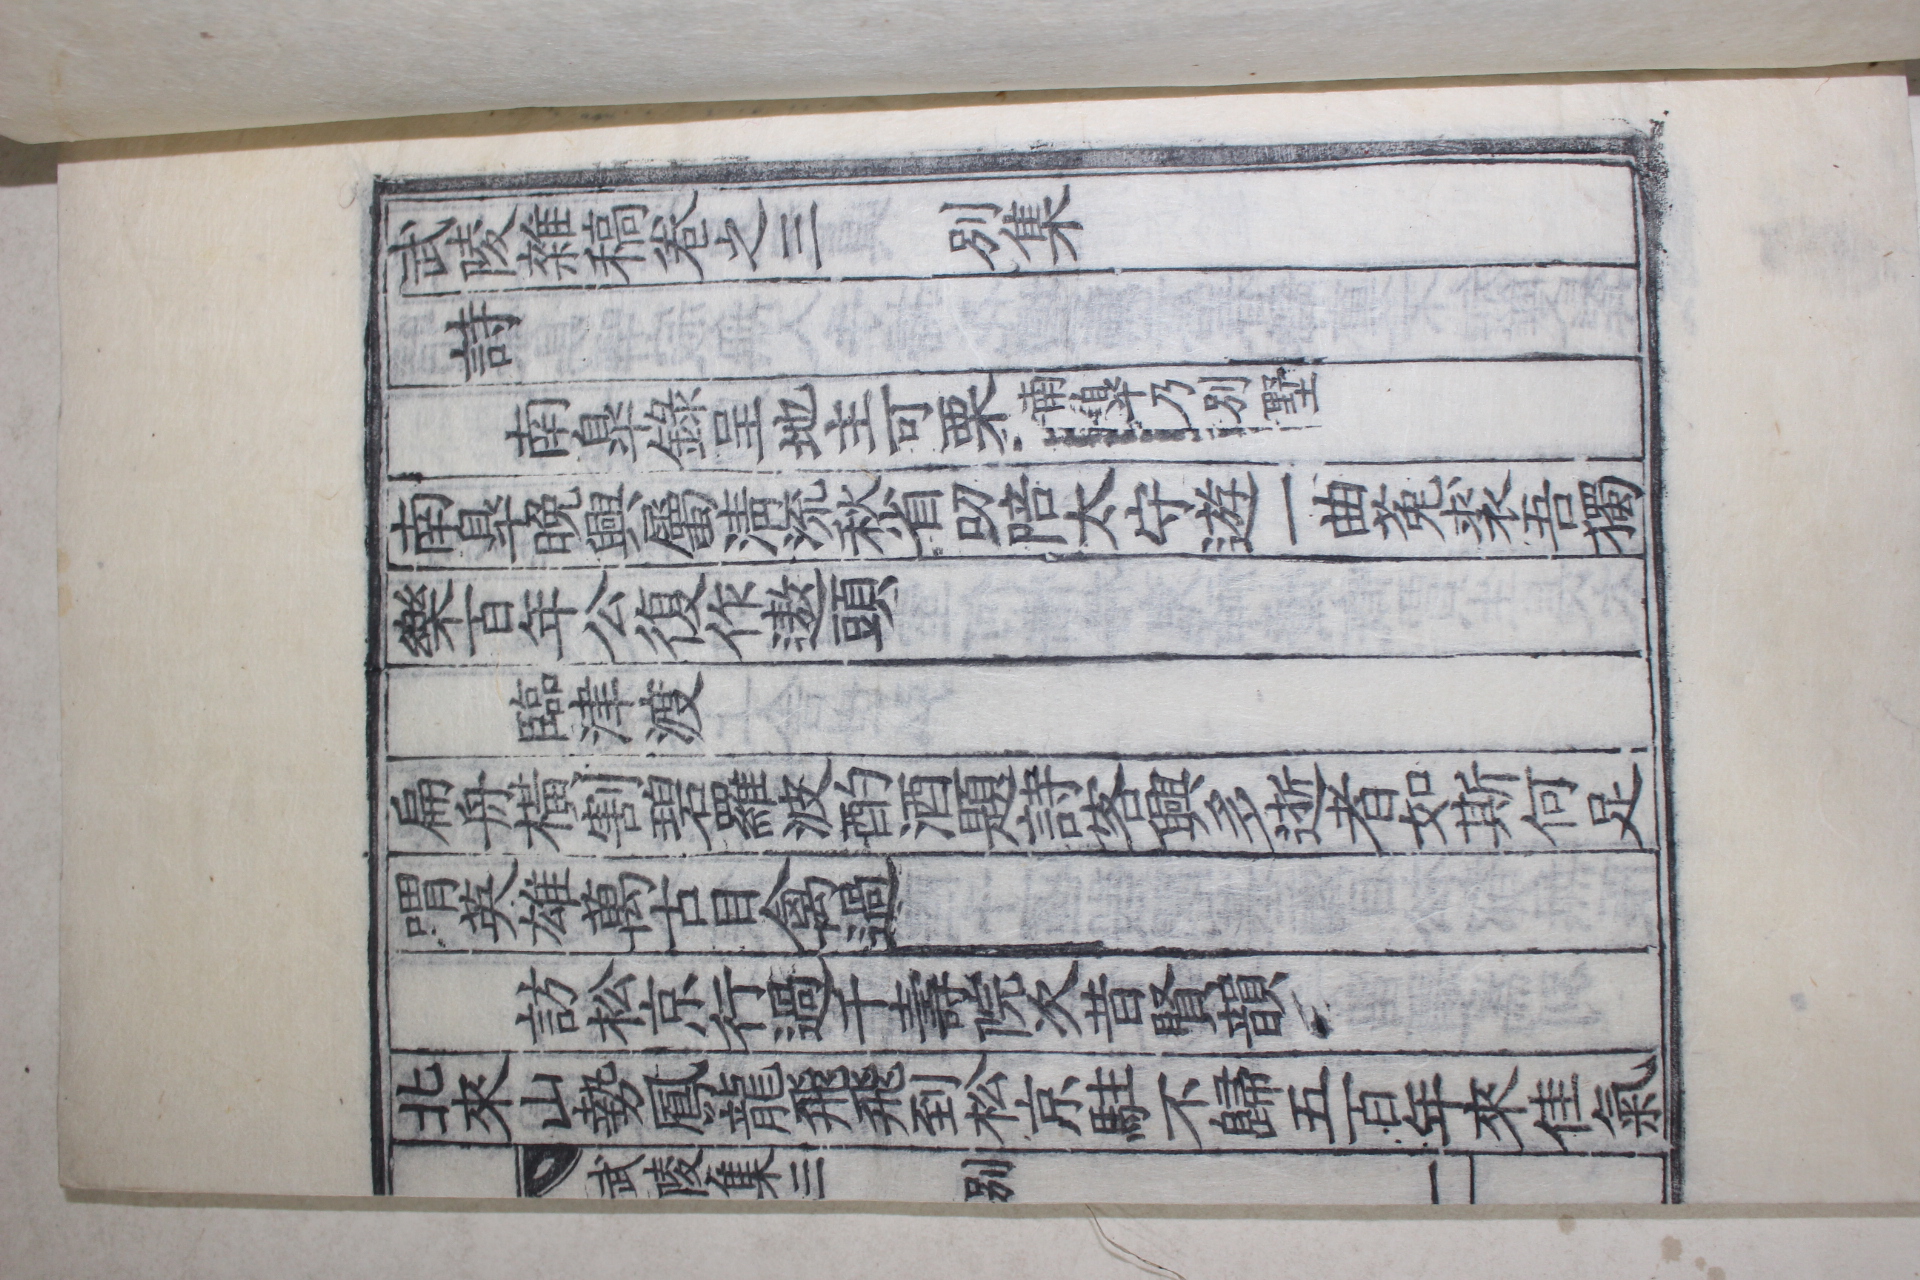 武陵雜稿卷之三　別集
詩
南皐錄呈地主可栗　南皐乃別墅
南皐晚興屬淸流秋省叨陪太守遊一曲菟裘吾獨
樂百年公復作遨頭
臨津渡
扁舟橫割碧羅波酌酒題詩客興多逝者如斯何足
喟英雄萬古目禽過
訪松京行過千壽院次昔賢韻
北來山勢鳳龍飛飛到松京駐不歸五百年來佳氣
武陵集三　別　一